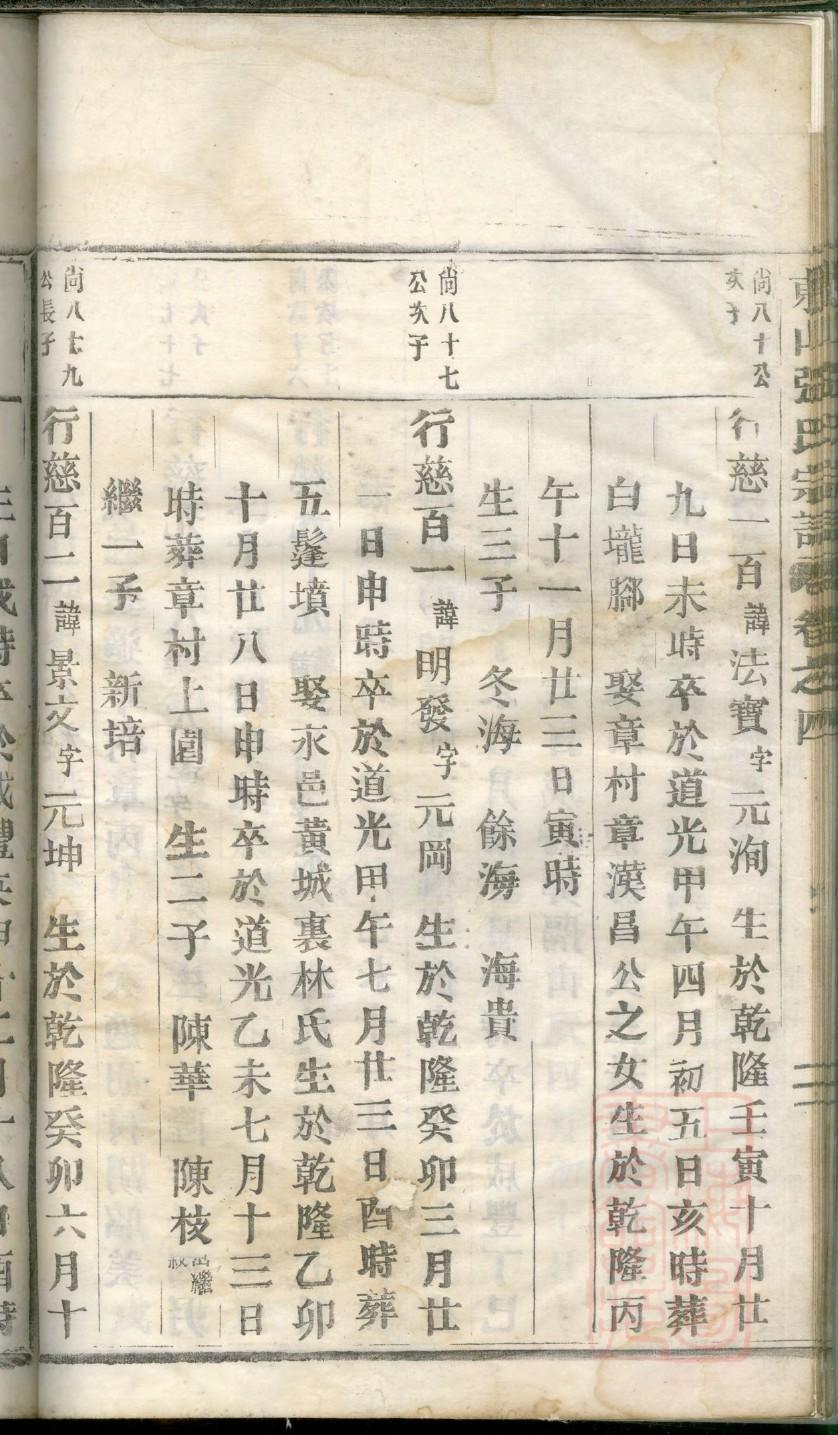 張氏宗譜 卷之四 二
尚八十公
次子
行慈一百諱法寶字元洵 生於乾隆壬寅十月廿
九日未時卒於道光甲午四月初五日亥時葬
白壠腳 娶章村章漢昌公之女生於乾隆丙
午十一月廿三日寅時
生三子 冬海 餘海 海貴
尚八十七
公次子
行慈百一諱明發字元岡 生於乾隆癸卯三月廿
一日申時卒於道光甲午七月廿三日酉時葬
五髼墳 娶永邑黃城裏林氏生於乾隆乙卯
十月廿八日申時卒於道光乙未七月十三日
時葬章村上園 生二子 陳華 陳枝出繼
繼一子 新培
尚八十九
公長子
行慈百二諱景文字元坤 生於乾隆癸卯六月十